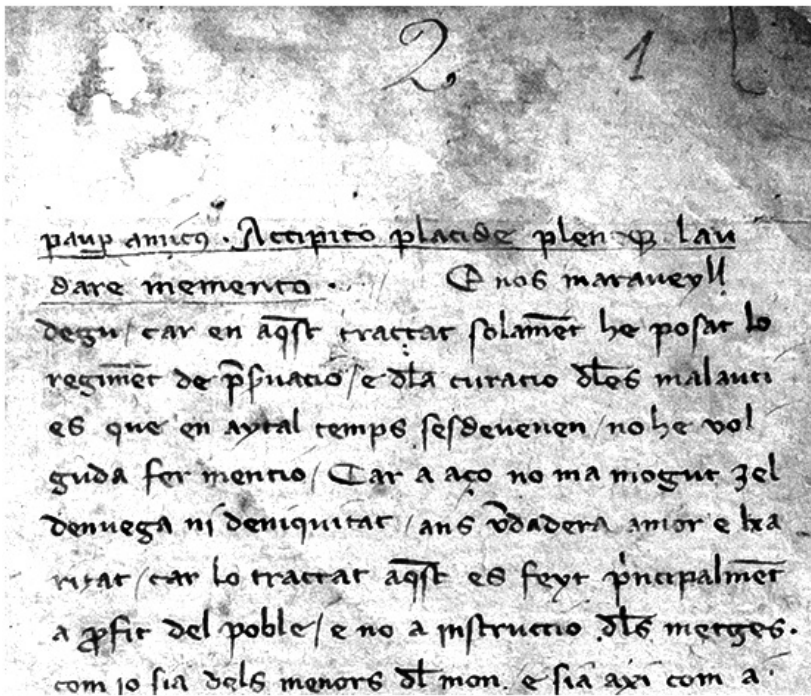 2 1
paup amicꝰ. Accipito placide plenꝙ lau
dare memento. E nos maraveyll
degu / car en aq̄st tractat solamēt he posat lo
regimēt de p̄ẛuacio / e dl̄a curacio dl̄es malauti
es que en aytal temps sesdevenen / no he vol
guda fer mentio / Car a aço no ma mogut zel
denvega ni deniquitat / ans v̄dadera amor e kxa
ritat / car lo tractat aq̄st es feyt p̄ncipalmēt
a ꝓfit del poble / e no a instructio dl̄s metges.
com jo sia dels menors dl̄ mon. e sia axi com a